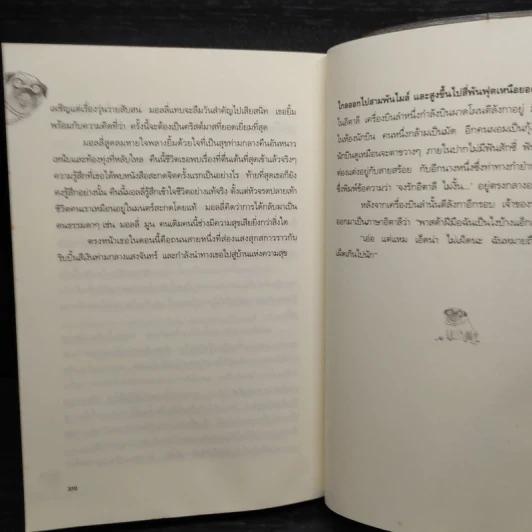 เผชิญแต่เรื่องวุ่นวายสับสน มอลลี่แทบจะลืมวันสำคัญไปเสียสนิท เธอยิ้ม
พร้อมกับความคิดที่ว่า ครั้งนี้จะต้องเป็นคริสต์มาสที่ยอดเยี่ยมที่สุด
มอลลี่สูดลมหายใจพลางยิ้มด้วยใจที่เป็นสุขท่ามกลางคืนอันหนาว
เหน็บและท้องทุ่งที่หลับใหล คืนนี้ชีวิตเธอพบเรื่องที่ตื่นเต้นที่สุดเข้าแล้วจริงๆ
ความรู้สึกที่เธอได้พบหนังสือสะกดจิตครั้งแรกเป็นอย่างไร ท้ายที่สุดเธอก็ยัง
คงรู้สึกอย่างนั้น คืนนี้มอลลี่รู้สึกเข้าใจชีวิตอย่างแท้จริง ตั้งแต่หัวจรดปลายเท้า
ชีวิตคนเราเหมือนอยู่ในมนตร์สะกดโดยแท้ มอลลี่คิดว่าการได้กลับมาเป็น
คนธรรมดาๆ เช่น มอลลี่ มูน คนเดิมคนนี้ช่างมีความสุขเสียยิ่งกว่าสิ่งใด
ตรงหน้าเธอในตอนนี้คือถนนสายหนึ่งที่ส่องแสงสุกสกาวราวกับ
ริบบิ้นสีเงินท่ามกลางแสงจันทร์ และกำลังนำทางเธอไปสู่บ้านแห่งความสุข
370
ไกลออกไปสามพันไมล์ และสูงขึ้นไปสี่พันฟุตเหนือยอด
ในอิตาลี เครื่องบินลำหนึ่งกำลังบินมาดโฉบตีลังกาอยู่
ในห้องนักบิน คนหนึ่งกล้ามเป็นมัด อีกคนผอมเป็นกุ้ง
นักบินดูเหมือนจะตาขวางๆ ภายในปากไม่มีฟันสักซี่
ต้องแต่งอยู่กับสายสร้อย กับอีกนางหนึ่งซึ่งท่าทาง
ซึ่งพิมพ์ข้อความว่า 'จงรักอิตาลี ไม่งั้น...' อยู่ตรงกลาง
หลังจากเครื่องบินลำนั้นตีลังกาอีกรอบ เจ้าของ
ออกมาเป็นภาษาอิตาลีว่า "พาสต้าฝีมือฉันเป็นไงบ้าง
"เอ่อ แต่แหม เอ็ดน่า ไม่เผ็ดนะ ฉันหมายถึง
เผ็ดเกินไปนัก"